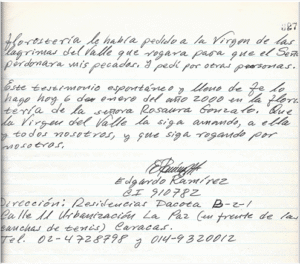 387
floristería le había pedido a la Virgen de las
lágrimas del Valle que rogara para que el Señor
perdonara mis pecados. Y pedí por otras personas.
Este testimonio espontáneo y lleno de fe lo
hago hoy 6 de enero del año 2000 en la floris-
tería de la señora Rosaura Gonzalo. Que
la Virgen del Valle la siga amando, a ella
y todos nosotros, y que siga rogando por
nosotros.
Edgardo Ramírez
CI 910782
Dirección: Residencias Dacota B-2-1
Calle 11 Urbanización La Paz (en frente de las
canchas de tenis) Caracas.
Tel. 02-4728798 y 014-9320012